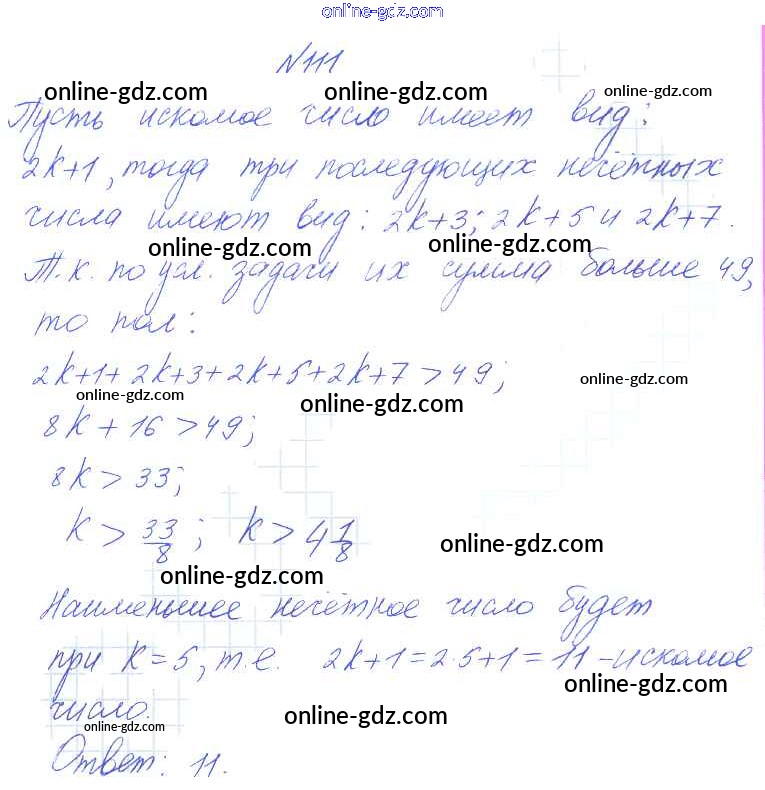 online-gdz.com
N111
online-gdz.com online-gdz.com online-gdz.com
Пусть искомое число имеет вид:
2k+1, тогда три последующих нечётных
числа имеют вид: 2k+3; 2k+5 и 2k+7.
online-gdz.com online-gdz.com
Т.к. по усл. задачи их сумма больше 49,
то пол:
2k+1+2k+3+2k+5+2k+7>49;
online-gdz.com online-gdz.com online-gdz.com
8k+16>49;
8k>33;
k>33/8; k>4 1/8
online-gdz.com
online-gdz.com
Наименьшее нечётное число будет
при k=5, т.е. 2k+1=2·5+1=11-искомое
online-gdz.com
число.
online-gdz.com online-gdz.com
Ответ: 11.